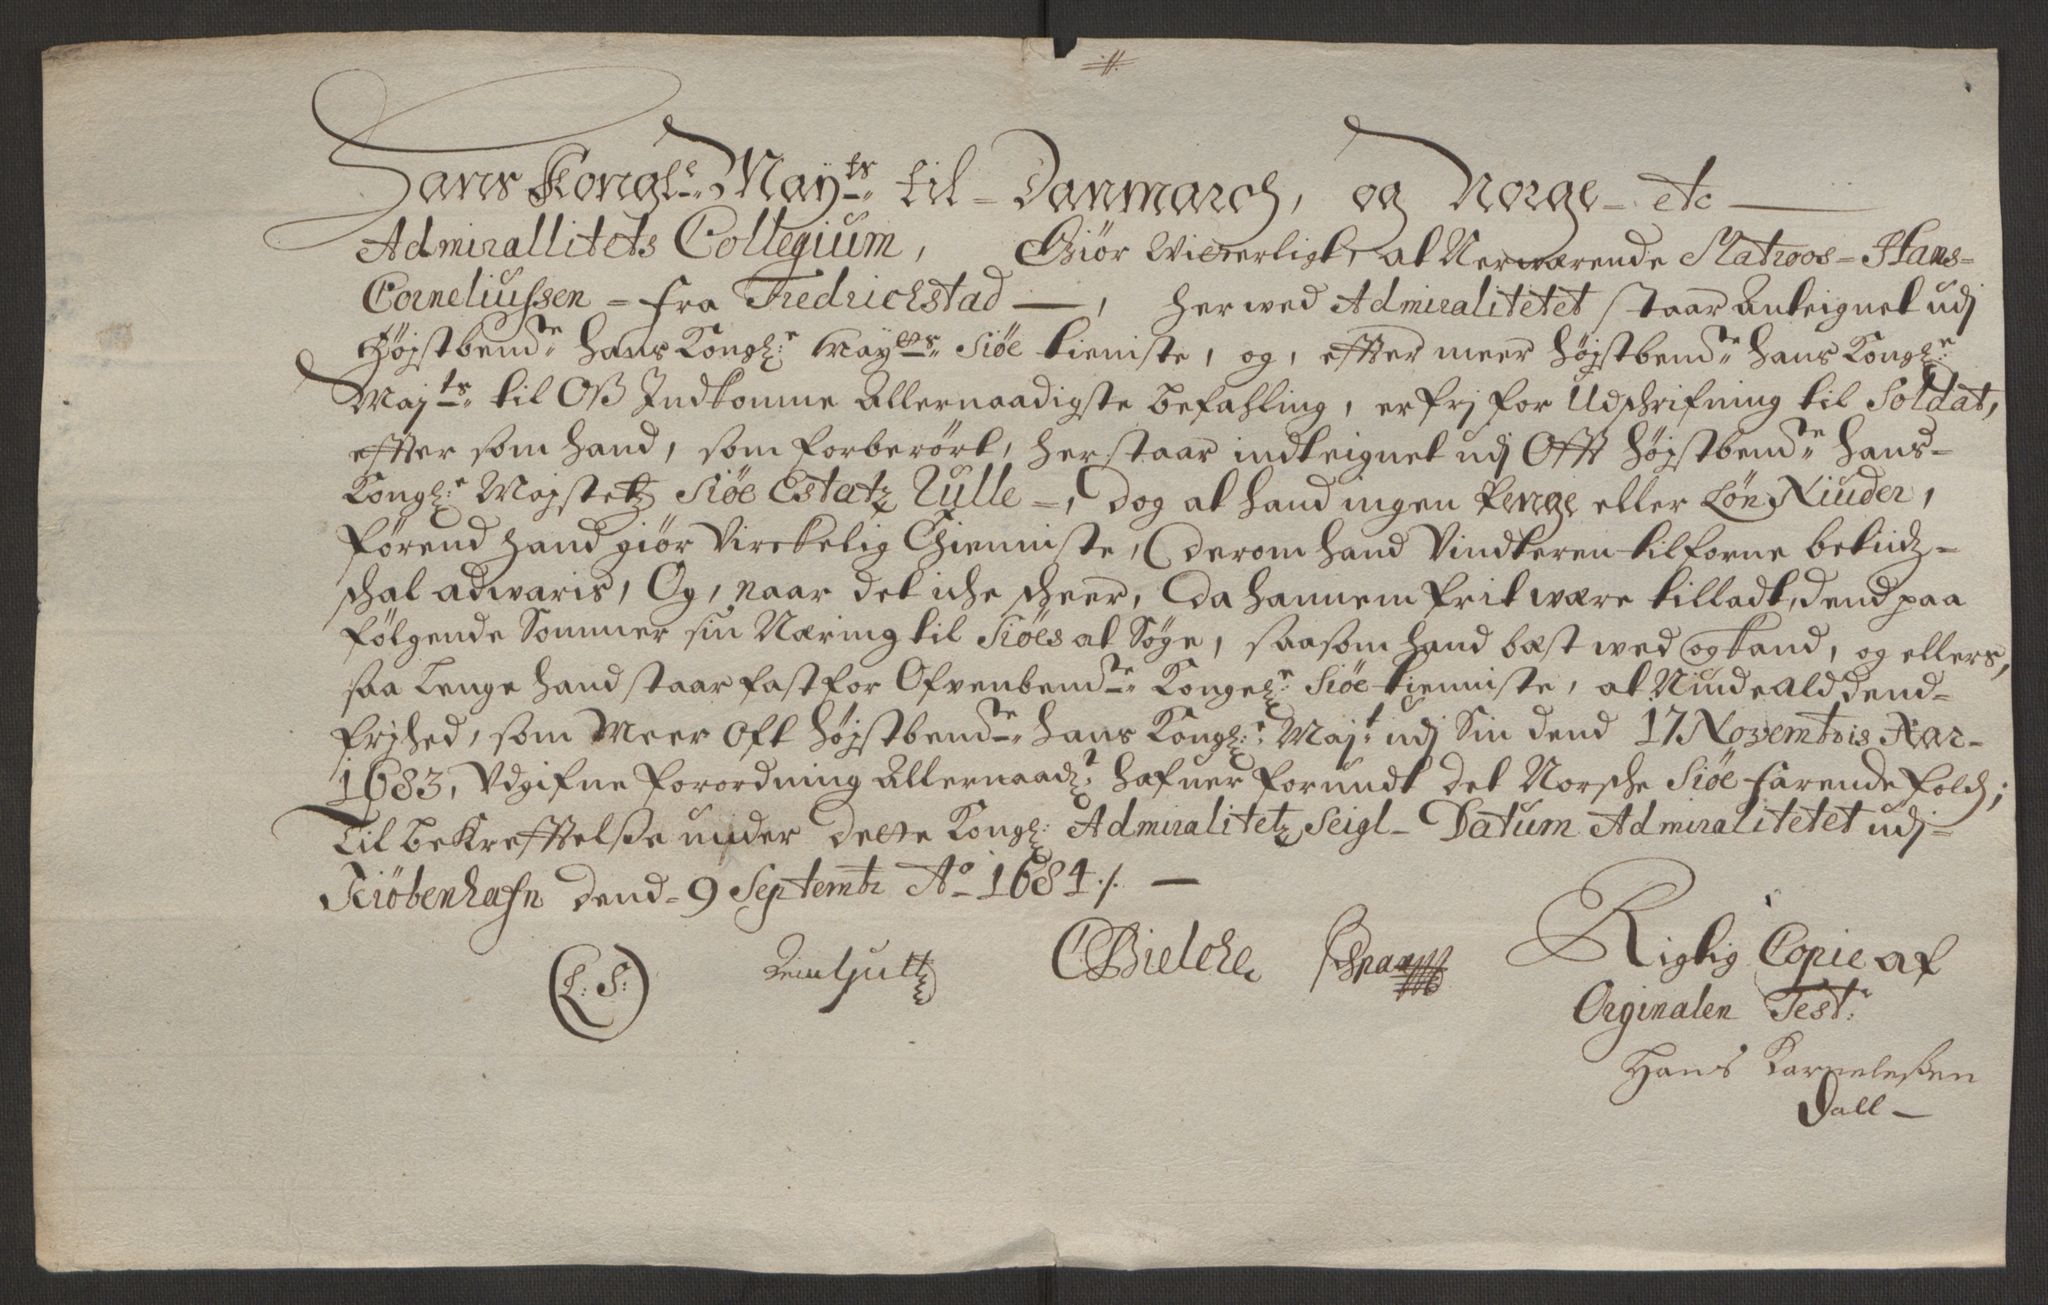 Hans Kongl:e Mayts til Danmarch, og Norge etc
Admirallitets Collegium, Giör Witterligt, at Nerwærende Matroos Hans
Corneliussen fra Fredrichstad, her wed Admiralitetet staar Anteignet udj
Højstbemte hans Kongl:e Mayets Siöe tieniste, og, effter meer højstbemte hans Kongl:e
Majts til Oß Indkomne Allernaadigste befahling, er frj for Udschrifning til Soldat,
effter som hand, som forberört, her staar indteignet udj Offt højstbemte hans
Kongl:e Majstetz Siöe Estatz Rulle, dog at hand ingen Penge eller Lön Niuder,
förend hand giör Virckelig Thienniste, (derom hand Vindteren tilforne betidz
schal adwaris, Og, naar det iche scheer, da hannem frit være tilladt, dend paa
fölgende Sommer sin Næring til Siöes at Söge, saasom hand bæst wed og kand, og ellers,
saa lenge hand staar fast for Ofvenbemte Kongel:e Siöe tienniste, at Niude ald dend
frjhed, som Meer Oft højstbemte hans Kongl:e Majt udj Sin dend 17 Novembris Aar
1683, Udgifne forordning Allernaadt hafuer forundt det Norsche Siöe farende folch;
Til bekrefftelße under dette Kongl: Admiralitetz Seigl Datum Admiralitetet udj
Kiöbenhafn dend 9 Septembr Ao 1684 ./.
(L: S:) CBielche Spann Rigtig Copie af
Orginalen Test:
Hans Karneleßen
Dall